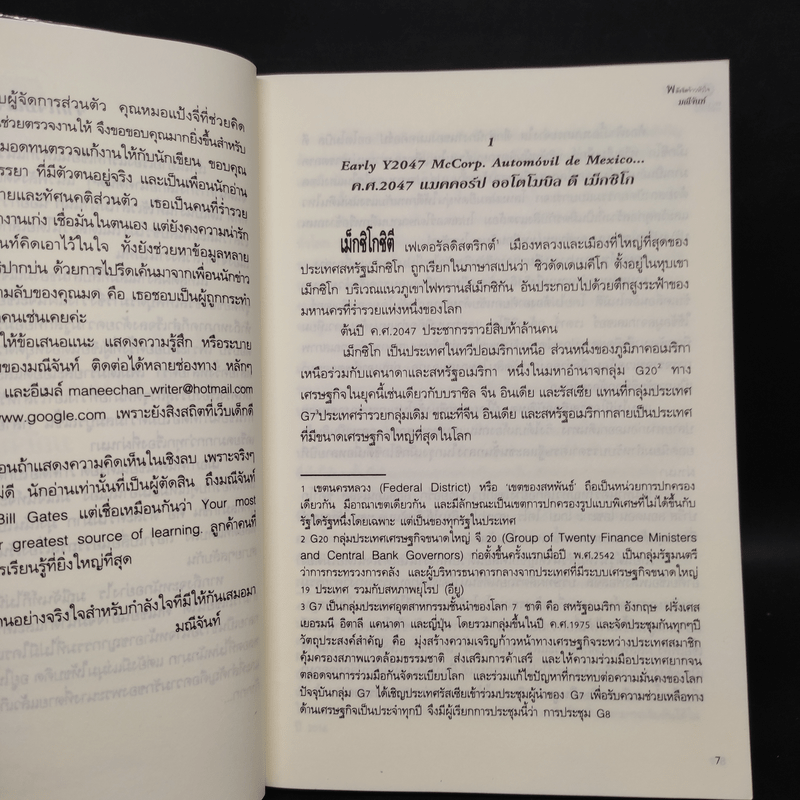 บผู้จัดการส่วนตัว คุณหมอแป้งจี่ที่ช่วยคิด
ช่วยตรวจงานให้ จึงขอขอบคุณมากยิ่งขึ้นสำหรับ
มอดทนตรวจแก้งานให้กับนักเขียน ขอบคุณ
รรยา ที่มีตัวตนอยู่จริง และเป็นเพื่อนนักอ่าน
ายและทัศนคติส่วนตัว เธอเป็นคนที่ร่ำรวย
างานเก่ง เชื่อมั่นในตนเอง แต่ยังคงความน่ารัก
นท์คิดเอาไว้ในใจ ทั้งยังช่วยหาข้อมูลหลาย
รีปากบ่น ด้วยการไปรีดเค้นมาจากเพื่อนนักข่าว
ามลับของคุณมด คือ เธอชอบเป็นผู้ถูกกระทำ
าคนเช่นเคยค่ะ
ให้ข้อเสนอแนะ แสดงความรู้สึก หรือระบาย
ของมณีจันท์ ติดต่อได้หลายช่องทาง หลักๆ
และอีเมล์ maneechan_writer@hotmail.com
www.google.com เพราะยังสิงสถิตที่เว็บเด็กดี
อนถ้าแสดงความคิดเห็นในเชิงลบ เพราะจริงๆ
ม่ดี นักอ่านเท่านั้นที่เป็นผู้ตัดสิน ถึงมณีจันท์
Bill Gates แต่เชื่อเหมือนกันว่า Your most
r greatest source of learning. ลูกค้าคนที่
ารเรียนรู้ที่ยิ่งใหญ่ที่สุด
านอย่างจริงใจสำหรับกำลังใจที่มีให้กันเสมอมา
มณีจันท์
มณีจันท์
1
Early Y2047 McCorp. Automóvil de Mexico...
ค.ศ.2047 แมคคอร์ป ออโตโมบิล ดี เม็กซิโก
เม็กซิโกซิตี เฟเดอรัลดิสตริกต์1 เมืองหลวงและเมืองที่ใหญ่ที่สุดของ
ประเทศสหรัฐเม็กซิโก ถูกเรียกในภาษาสเปนว่า ซิวดัดเดเมคีโก ตั้งอยู่ในหุบเขา
เม็กซิโก บริเวณแนวภูเขาไฟทรานส์เม็กซิกัน อันประกอบไปด้วยตึกสูงระฟ้าของ
มหานครที่ร่ำรวยแห่งหนึ่งของโลก
ต้นปี ค.ศ.2047 ประชากรราวยี่สิบห้าล้านคน
เม็กซิโก เป็นประเทศในทวีปอเมริกาเหนือ ส่วนหนึ่งของภูมิภาคอเมริกา
เหนือร่วมกับแคนาดาและสหรัฐอเมริกา หนึ่งในมหาอำนาจกลุ่ม G202 ทาง
เศรษฐกิจในยุคนี้เช่นเดียวกับบราซิล จีน อินเดีย และรัสเซีย แทนที่กลุ่มเดิม
G73ประเทศร่ำรวยกลุ่มเดิม ขณะที่จีน อินเดีย และสหรัฐอเมริกากลายเป็นประเทศ
ที่มีขนาดเศรษฐกิจใหญ่ที่สุดในโลก
1 เขตนครหลวง (Federal District) หรือ 'เขตของสหพันธ์' ถือเป็นหน่วยการปกครอง
เดียวกัน มีอาณาเขตเดียวกัน และมีลักษณะเป็นเขตการปกครองรูปแบบพิเศษที่ไม่ได้ขึ้นกับ
รัฐใดรัฐหนึ่งโดยเฉพาะ แต่เป็นของทุกรัฐในประเทศ
2 G20 กลุ่มประเทศเศรษฐกิจขนาดใหญ่ จี 20 (Group of Twenty Finance Ministers
and Central Bank Governors) ก่อตั้งขึ้นครั้งแรกเมื่อปี พ.ศ.2542 เป็นกลุ่มรัฐมนตรี
ว่าการกระทรวงการคลัง และผู้บริหารธนาคารกลางจากประเทศที่มีระบบเศรษฐกิจขนาดใหญ่
19 ประเทศ รวมกับสหภาพยุโรป (อียู)
3 G7 เป็นกลุ่มประเทศอุตสาหกรรมชั้นนำของโลก 7 ชาติ คือ สหรัฐอเมริกา อังกฤษ ฝรั่งเศส
เยอรมนี อิตาลี แคนาดา และญี่ปุ่น โดยรวมกลุ่มขึ้นในปี ค.ศ.1975 และจัดประชุมกันทุกๆปี
วัตถุประสงค์สำคัญ คือ มุ่งสร้างความเจริญก้าวหน้าทางเศรษฐกิจระหว่างประเทศสมาชิก
คุ้มครองสภาพแวดล้อมธรรมชาติ ส่งเสริมการค้าเสรี และให้ความร่วมมือประเทศยากจน
ตลอดจนการร่วมมือกันจัดระเบียบโลก และร่วมแก้ไขปัญหาที่กระทบต่อความมั่นคงของโลก
ปัจจุบันกลุ่ม G7 ได้เชิญประเทศรัสเซียเข้าร่วมประชุมผู้นำของ G7 เพื่อรับความช่วยเหลือทาง
ด้านเศรษฐกิจเป็นประจำทุกปี จึงมีผู้เรียกการประชุมนี้ว่า การประชุม G8
7